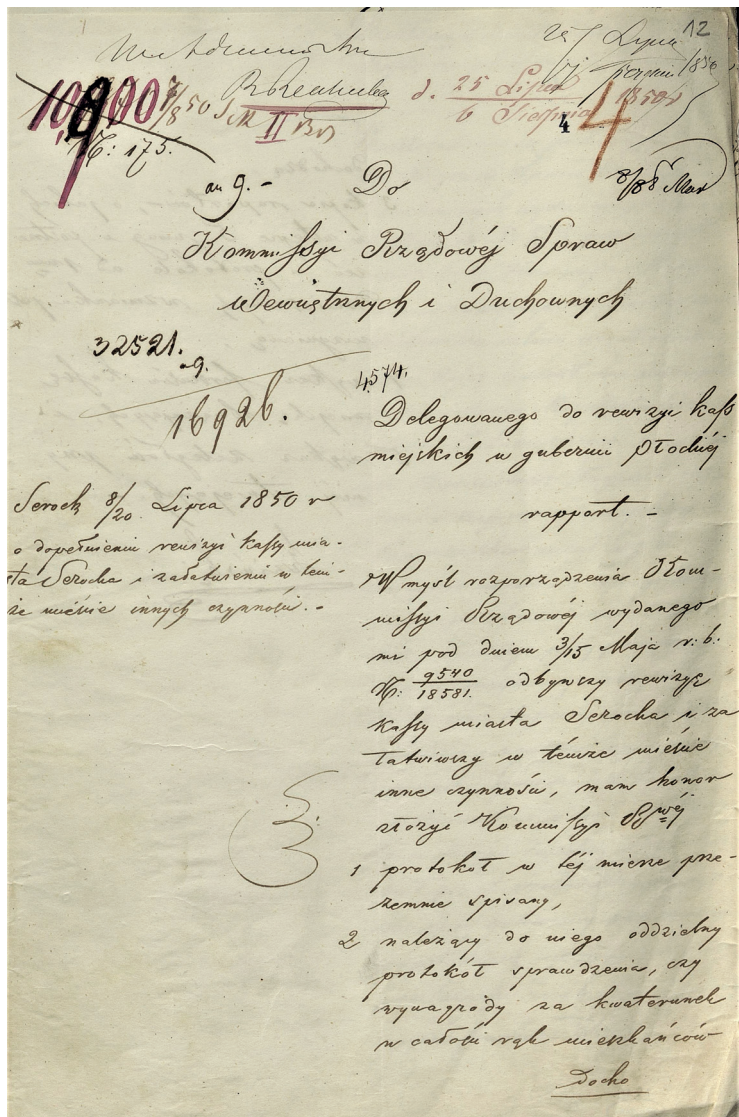 12
25 Lipca
6 Sierpnia 1850 r
10,900
N: 175.
II
4
4
an 9. –
Do
Kommissyi Rządowéj Spraw
Wewnętrznych i Duchownych
32521.
16926.
4574.
Delegowanego do rewizyi kass
miejskich w gubernii Płockiéj
rapport. –
Serock 8/20 Lipca 1850 r
o dopełnieniu rewizyi kassy mia-
sta Serocka i załatwieniu w tem-
że mieście innych czynności. –
W myśl rozporządzenia Kom-
missyi Rządowéj wydanego
mi pod dniem 3/15 Maja r: b:
N: 9540/18581. odbywszy rewizyę
kassy miasta Serocka i za
łatwiwszy w témże mieście
inne czynności, mam honor
złożyć Kommissyi Rdwéj
1 protokół w téj mierze prze-
zemnie spisany,
2 należący do niego oddzielny
protokół sprawdzenia, czy
wynagrody za kwaterunek
w całości rąk mieszkańców
Docho